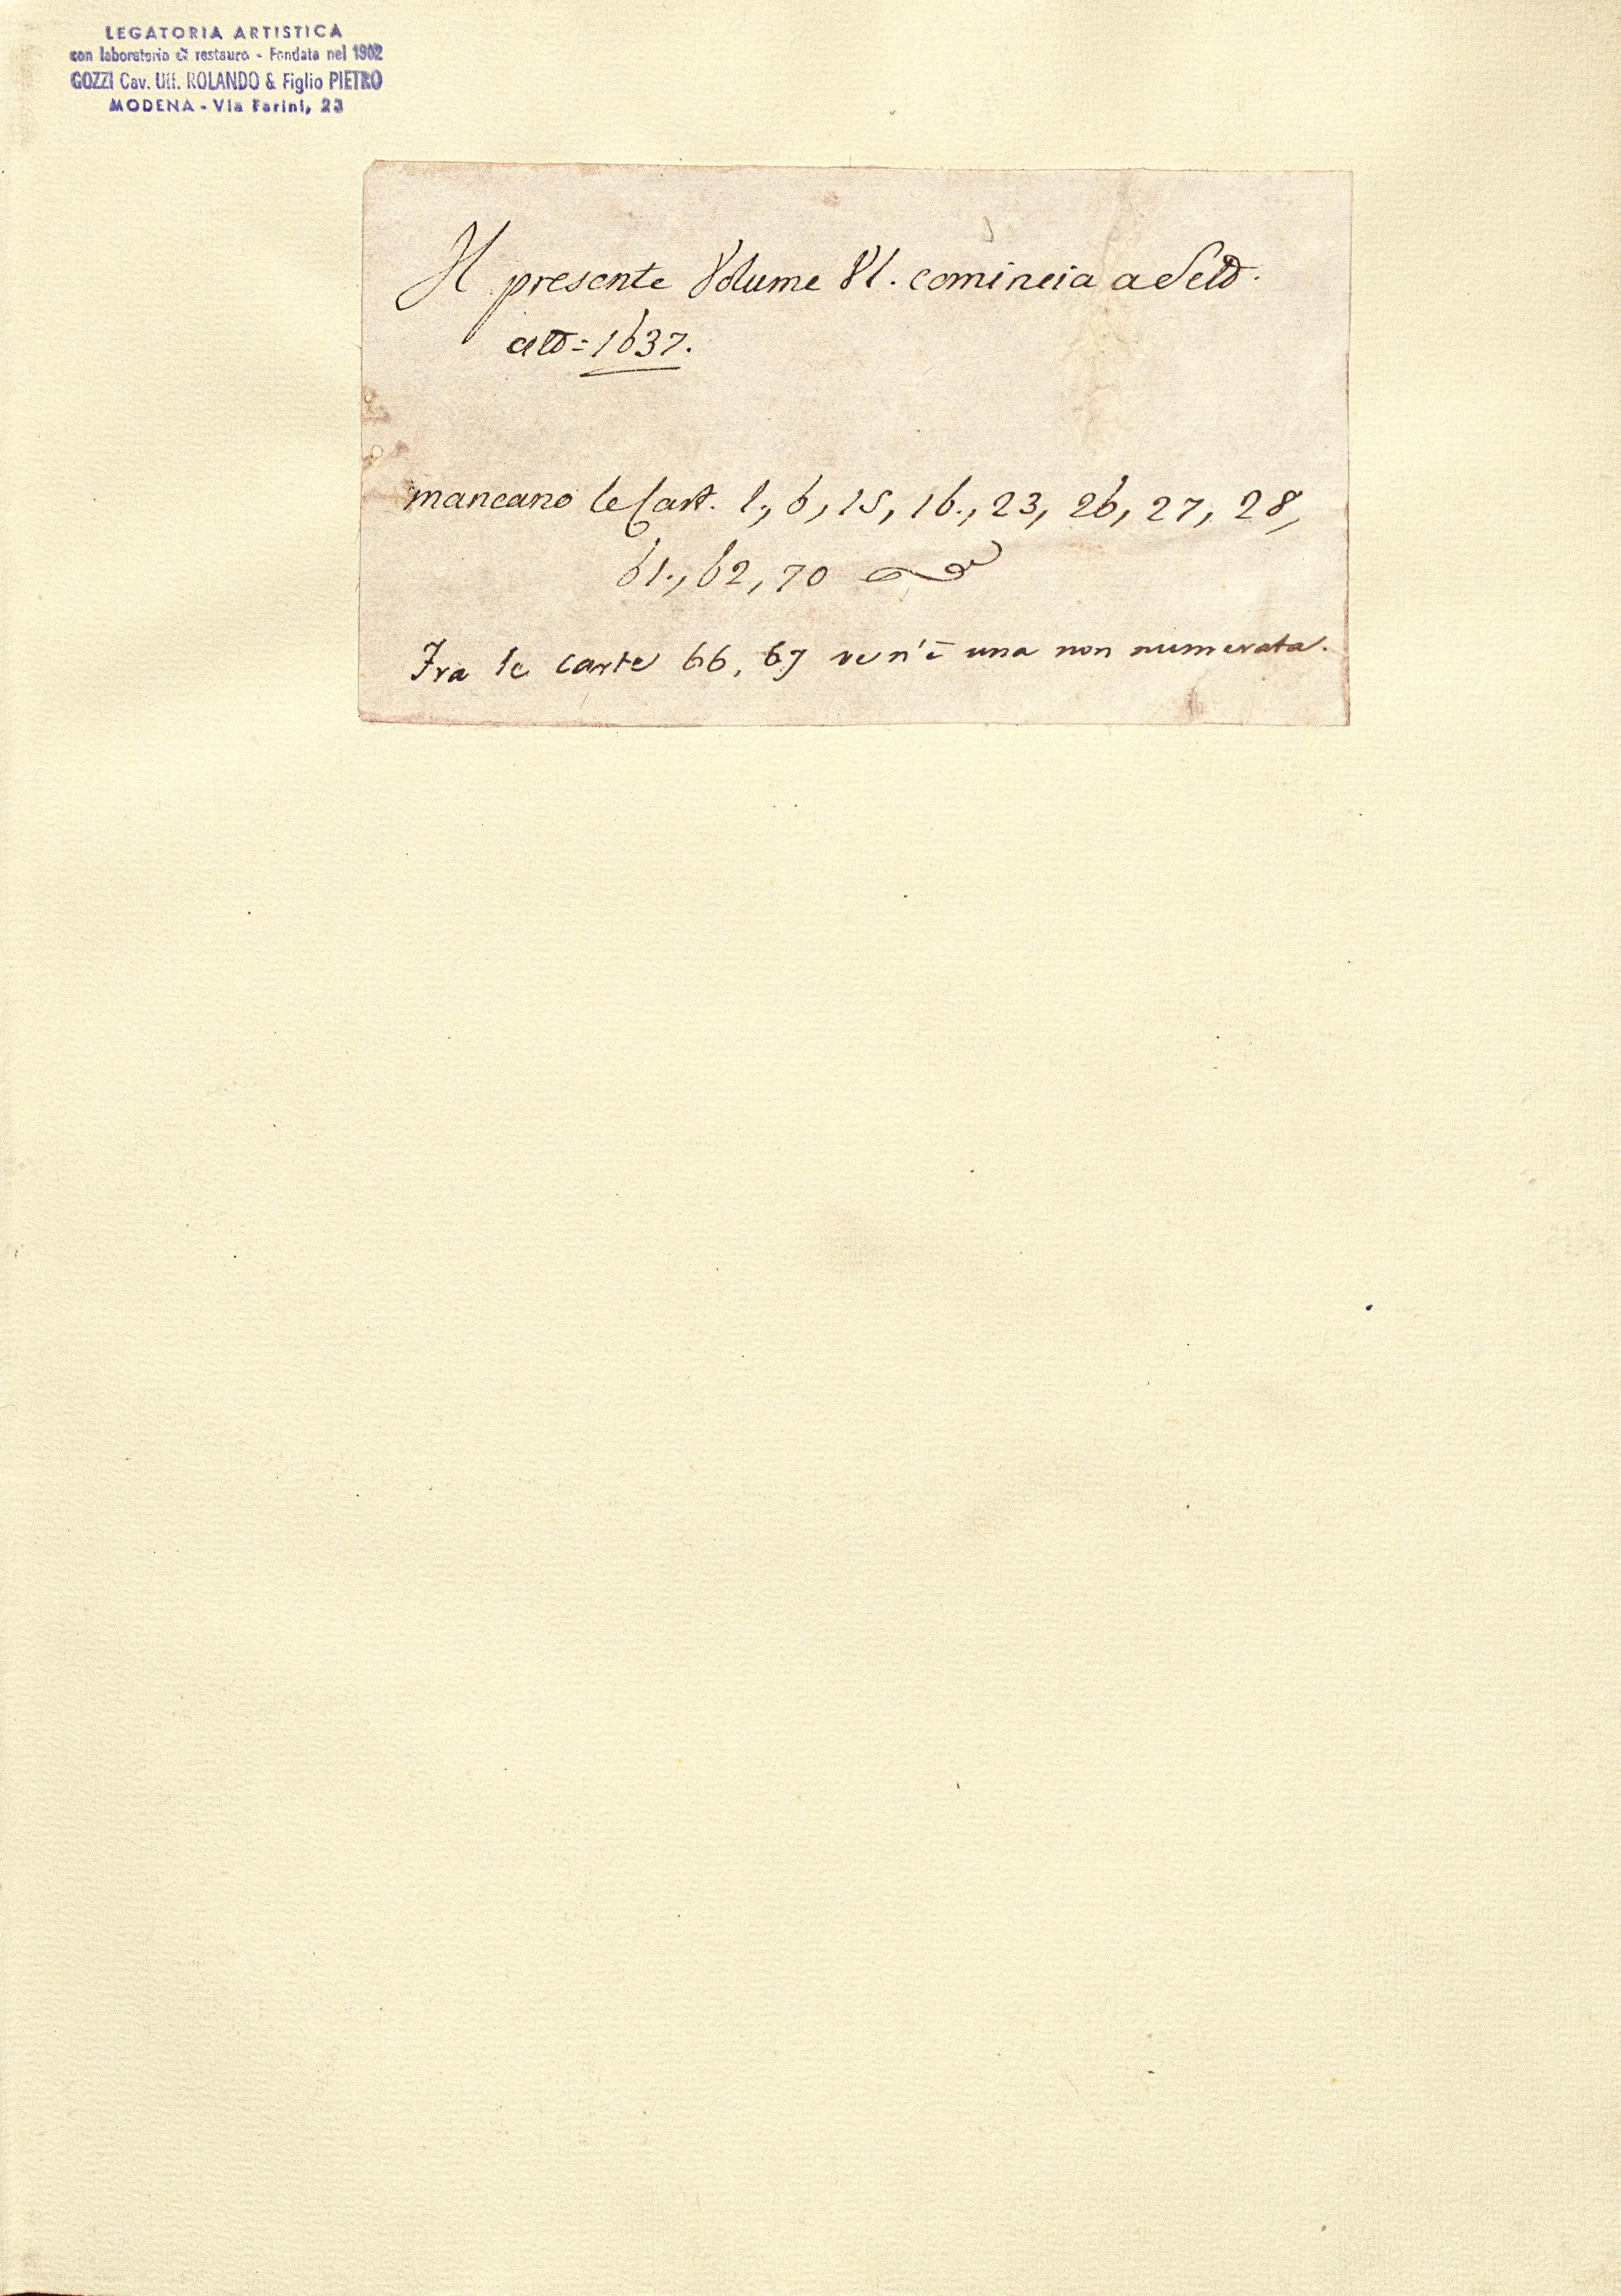 LEGATORIA ARTISTICA
con laboratorio di restauro - Fondata nel 1902
GOZZI Cav. Uff. ROLANDO & Figlio PIETRO
MODENA - Via Farini, 23
Il presente Volume VI. comincia a
1637.
mancano le Cart. 1., 6, 15, 16., 23, 26, 27, 28,
61., 62, 70
Fra le carte 66, 67 ve n'è una non numerata.